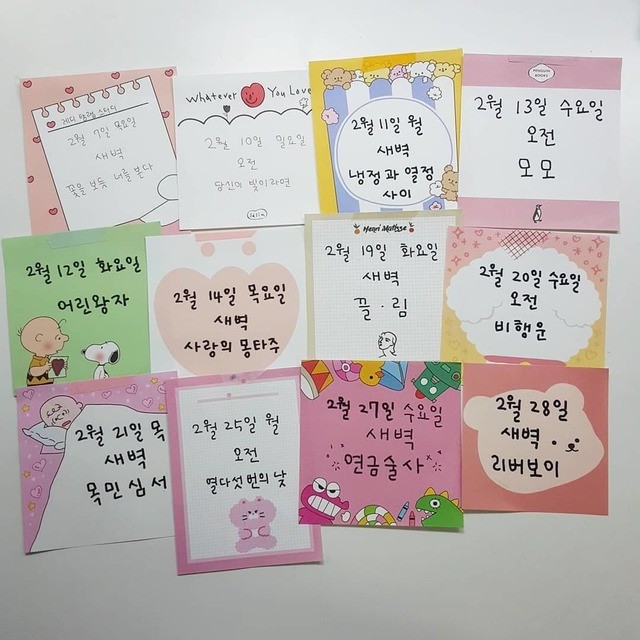 레디 말로 스터디
2월 7일 목요일
새벽
꽃을 보듯 너를 본다
Whatever You Love
2월 10일 일요일
오전
당신이 빛이라면
2월 11일 월
새벽
냉정과 열정
사이
PENGUIN
BOOKS
2월 13일 수요일
오전
모모
2월 12일 화요일
어린왕자
2월 14일 목요일
새벽
사랑의 몽타주
Henri Matisse
2월 19일 화요일
새벽
끌.림
2월 20일 수요일
오전
비행운
2월 21일 목
새벽
목민심서
2월 25일 월
오전
열다섯 번의 낮
2월 27일 수요일
새벽
연금술사
2월 28일
새벽
리버보이